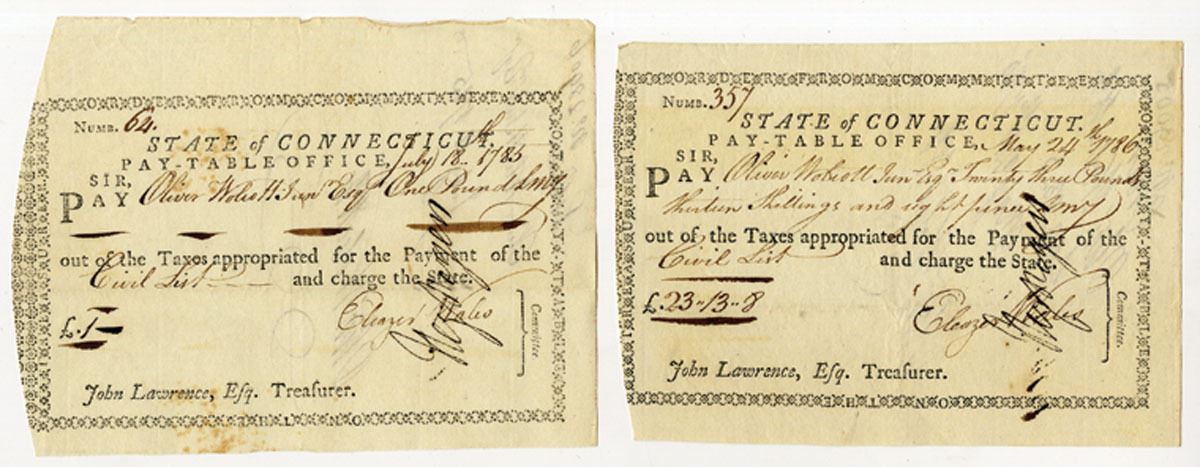 ORDER FROM COMMITTEE
OF PAY-TABLE
ON THE
TREASURER
NUMB. 64.
STATE of CONNECTICUT.
PAY-TABLE OFFICE, July 18th 1785
SIR,
PAY Oliver Wolcott Junr Esqr One Pound L My
out of the Taxes appropriated for the Payment of the
Civil List and charge the State.
£.1
Eleazer Wales
Committee.
John Lawrence, Esq. Treasurer.
ORDER FROM COMMITTEE
OF PAY-TABLE
ON THE
TREASURER
NUMB. 357
STATE of CONNECTICUT.
PAY-TABLE OFFICE, May 24th 1786
SIR,
PAY Oliver Wolcott Junr Esqr Twenty three Pounds
thirteen Shillings and eight pence L My
out of the Taxes appropriated for the Payment of the
Civil List and charge the State.
£.23-13-8
Eleazer Wales
Committee.
John Lawrence, Esq. Treasurer.